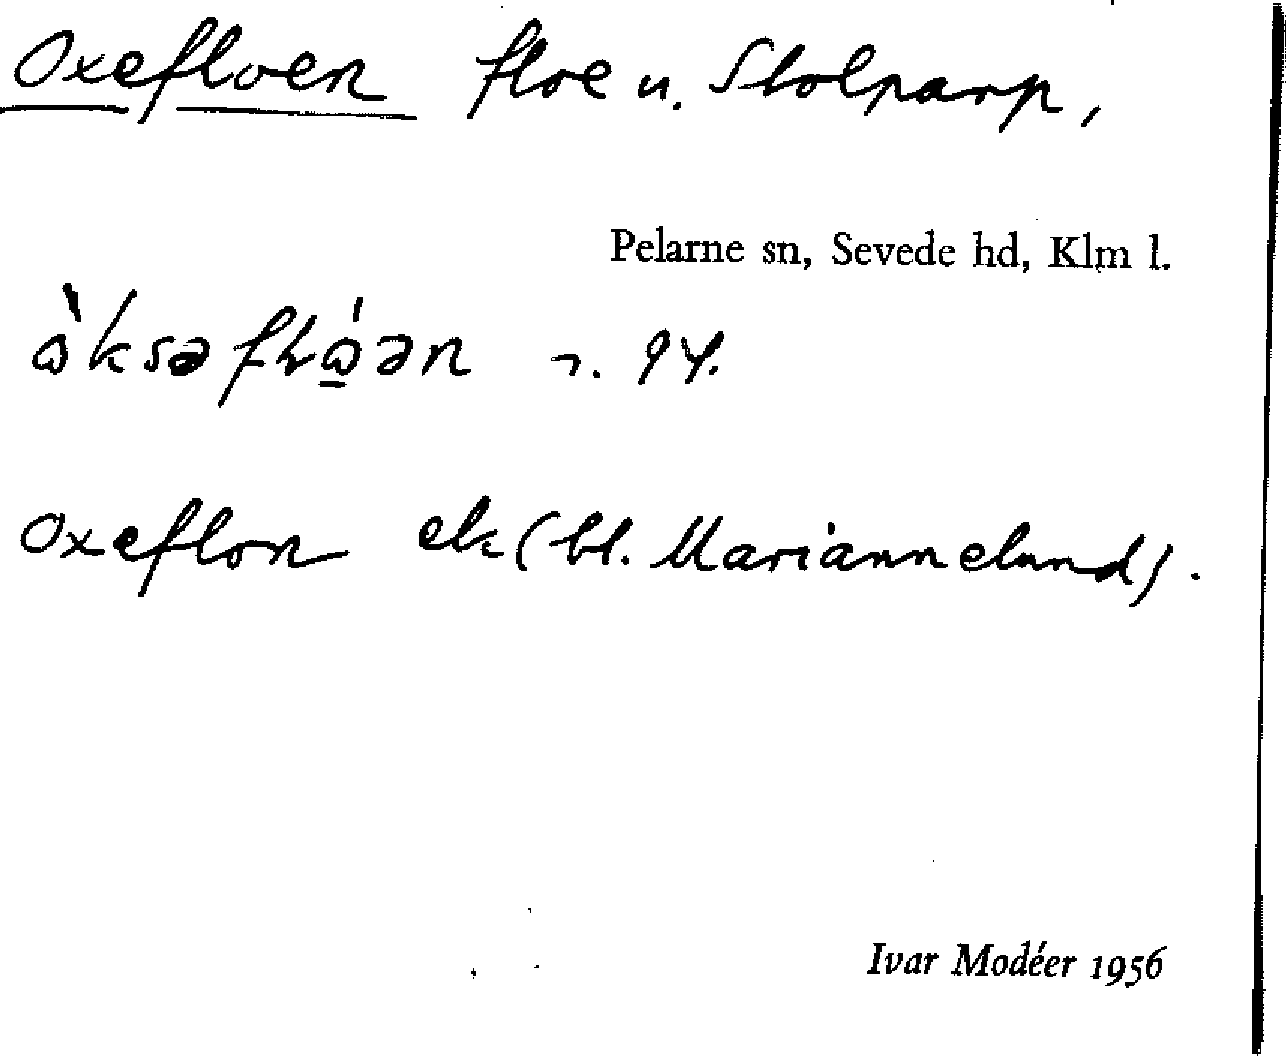 Oxefloen floe u. Stolparp,
Pelarne sn, Sevede hd, Klm l.
ɷ̀ksəflɷ̠́ən 94.
Oxeflon ek (bl. Mariannelund).
Ivar Modéer 1956